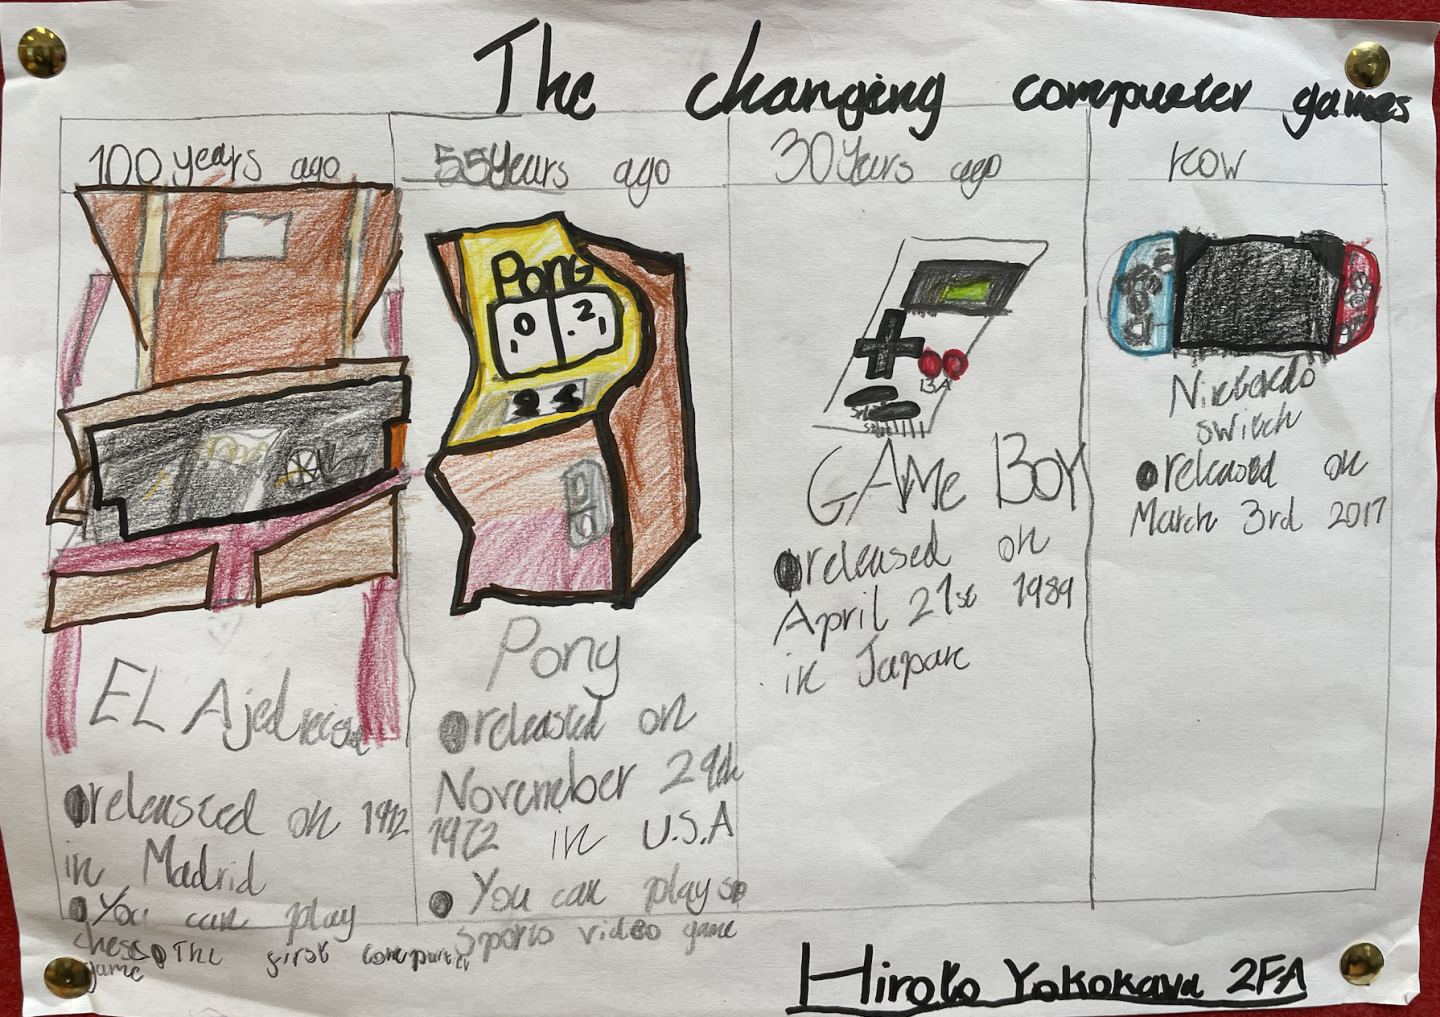 The changing computer games
100 years ago
55 years ago
30 Years ago
now
EL Ajedrecista
released on 1912
in Madrid
You can play
chess The first computer
game
Pong
0 2
Pong
released on
November 29th
1972 in U.S.A
You can play
sports video game
B A
GAMe BOY
released on
April 21st 1989
in Japan
Nintendo
switch
released on
March 3rd 2017
Hiroto Yokokawa 2FA